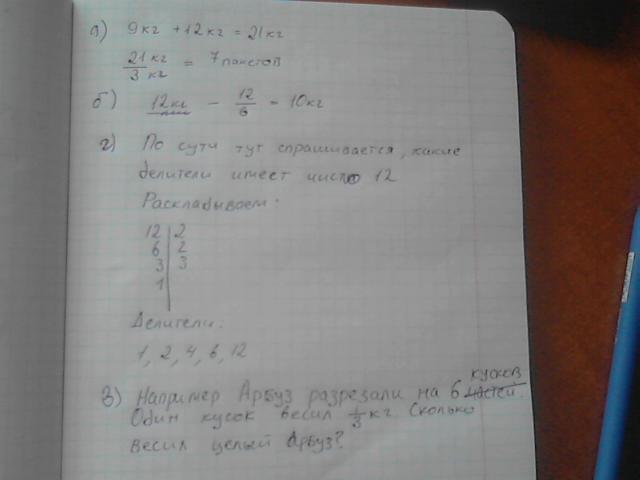 а) 9кг + 12кг = 21кг
21кг / 3кг = 7 пакетов
б) 12кг - 12/6 = 10кг
г) По сути тут спрашивается, какие
делители имеет число 12
Раскладываем:
12 | 2
6 | 2
3 | 3
1 |
Делители:
1, 2, 4, 6, 12
в) Например Арбуз разрезали на 6 частей. кусков
Один кусок весил 1/3 кг. Сколько
весил целый Арбуз?